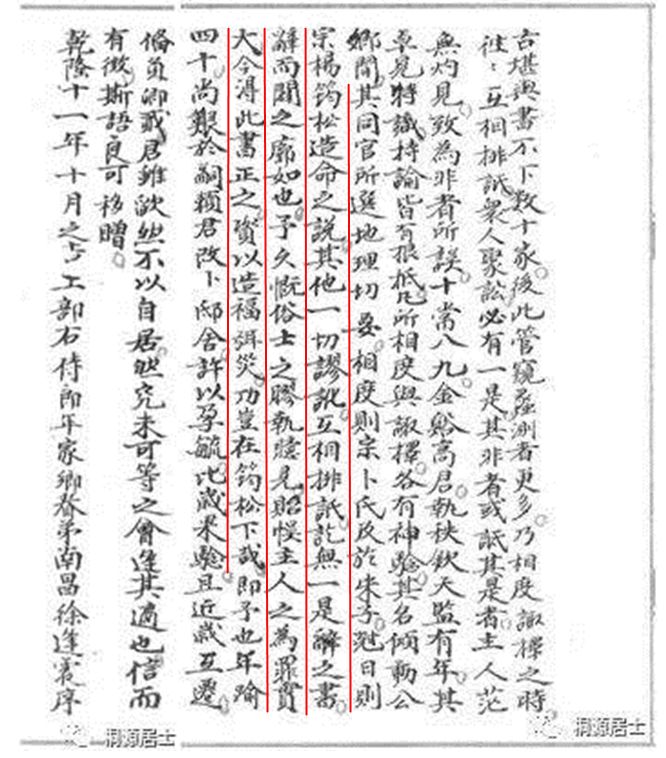 古堪輿書不下数十家後此管窺蠡測者更多乃相度諏擇之時
往〻互相排詆衆人聚訟必有一是其非者或詆其是者主人茫
無灼見致為非者所誤十常八九金谿高君執秩欽天監有年其
卓見特識持論皆有根柢凡所相度與諏擇各有神驗其名傾動公
卿間其同官所選地理切要相度則宗卜氏及於朱子尅日則
宗楊筠松造命之說其他一切謬訛互相排詆訖無一是辭之書
辭而闢之廓如也予久慨俗士之膠執臆見貽悮主人之為罪實
大今得此書正之資以造福弭災功豈在筠松下哉即予也年踰
四十尚艱於嗣賴君改卜邸舍許以孕毓比歲果驗且近歲互遷
備員卿貳君雖欿然不以自居然究未可等之會逢其適也信而
有徵斯語良可移贈
乾隆十一年十月之吉工部右侍郎年家鄉眷弟南昌徐逢震序
洞源居士
洞源居士